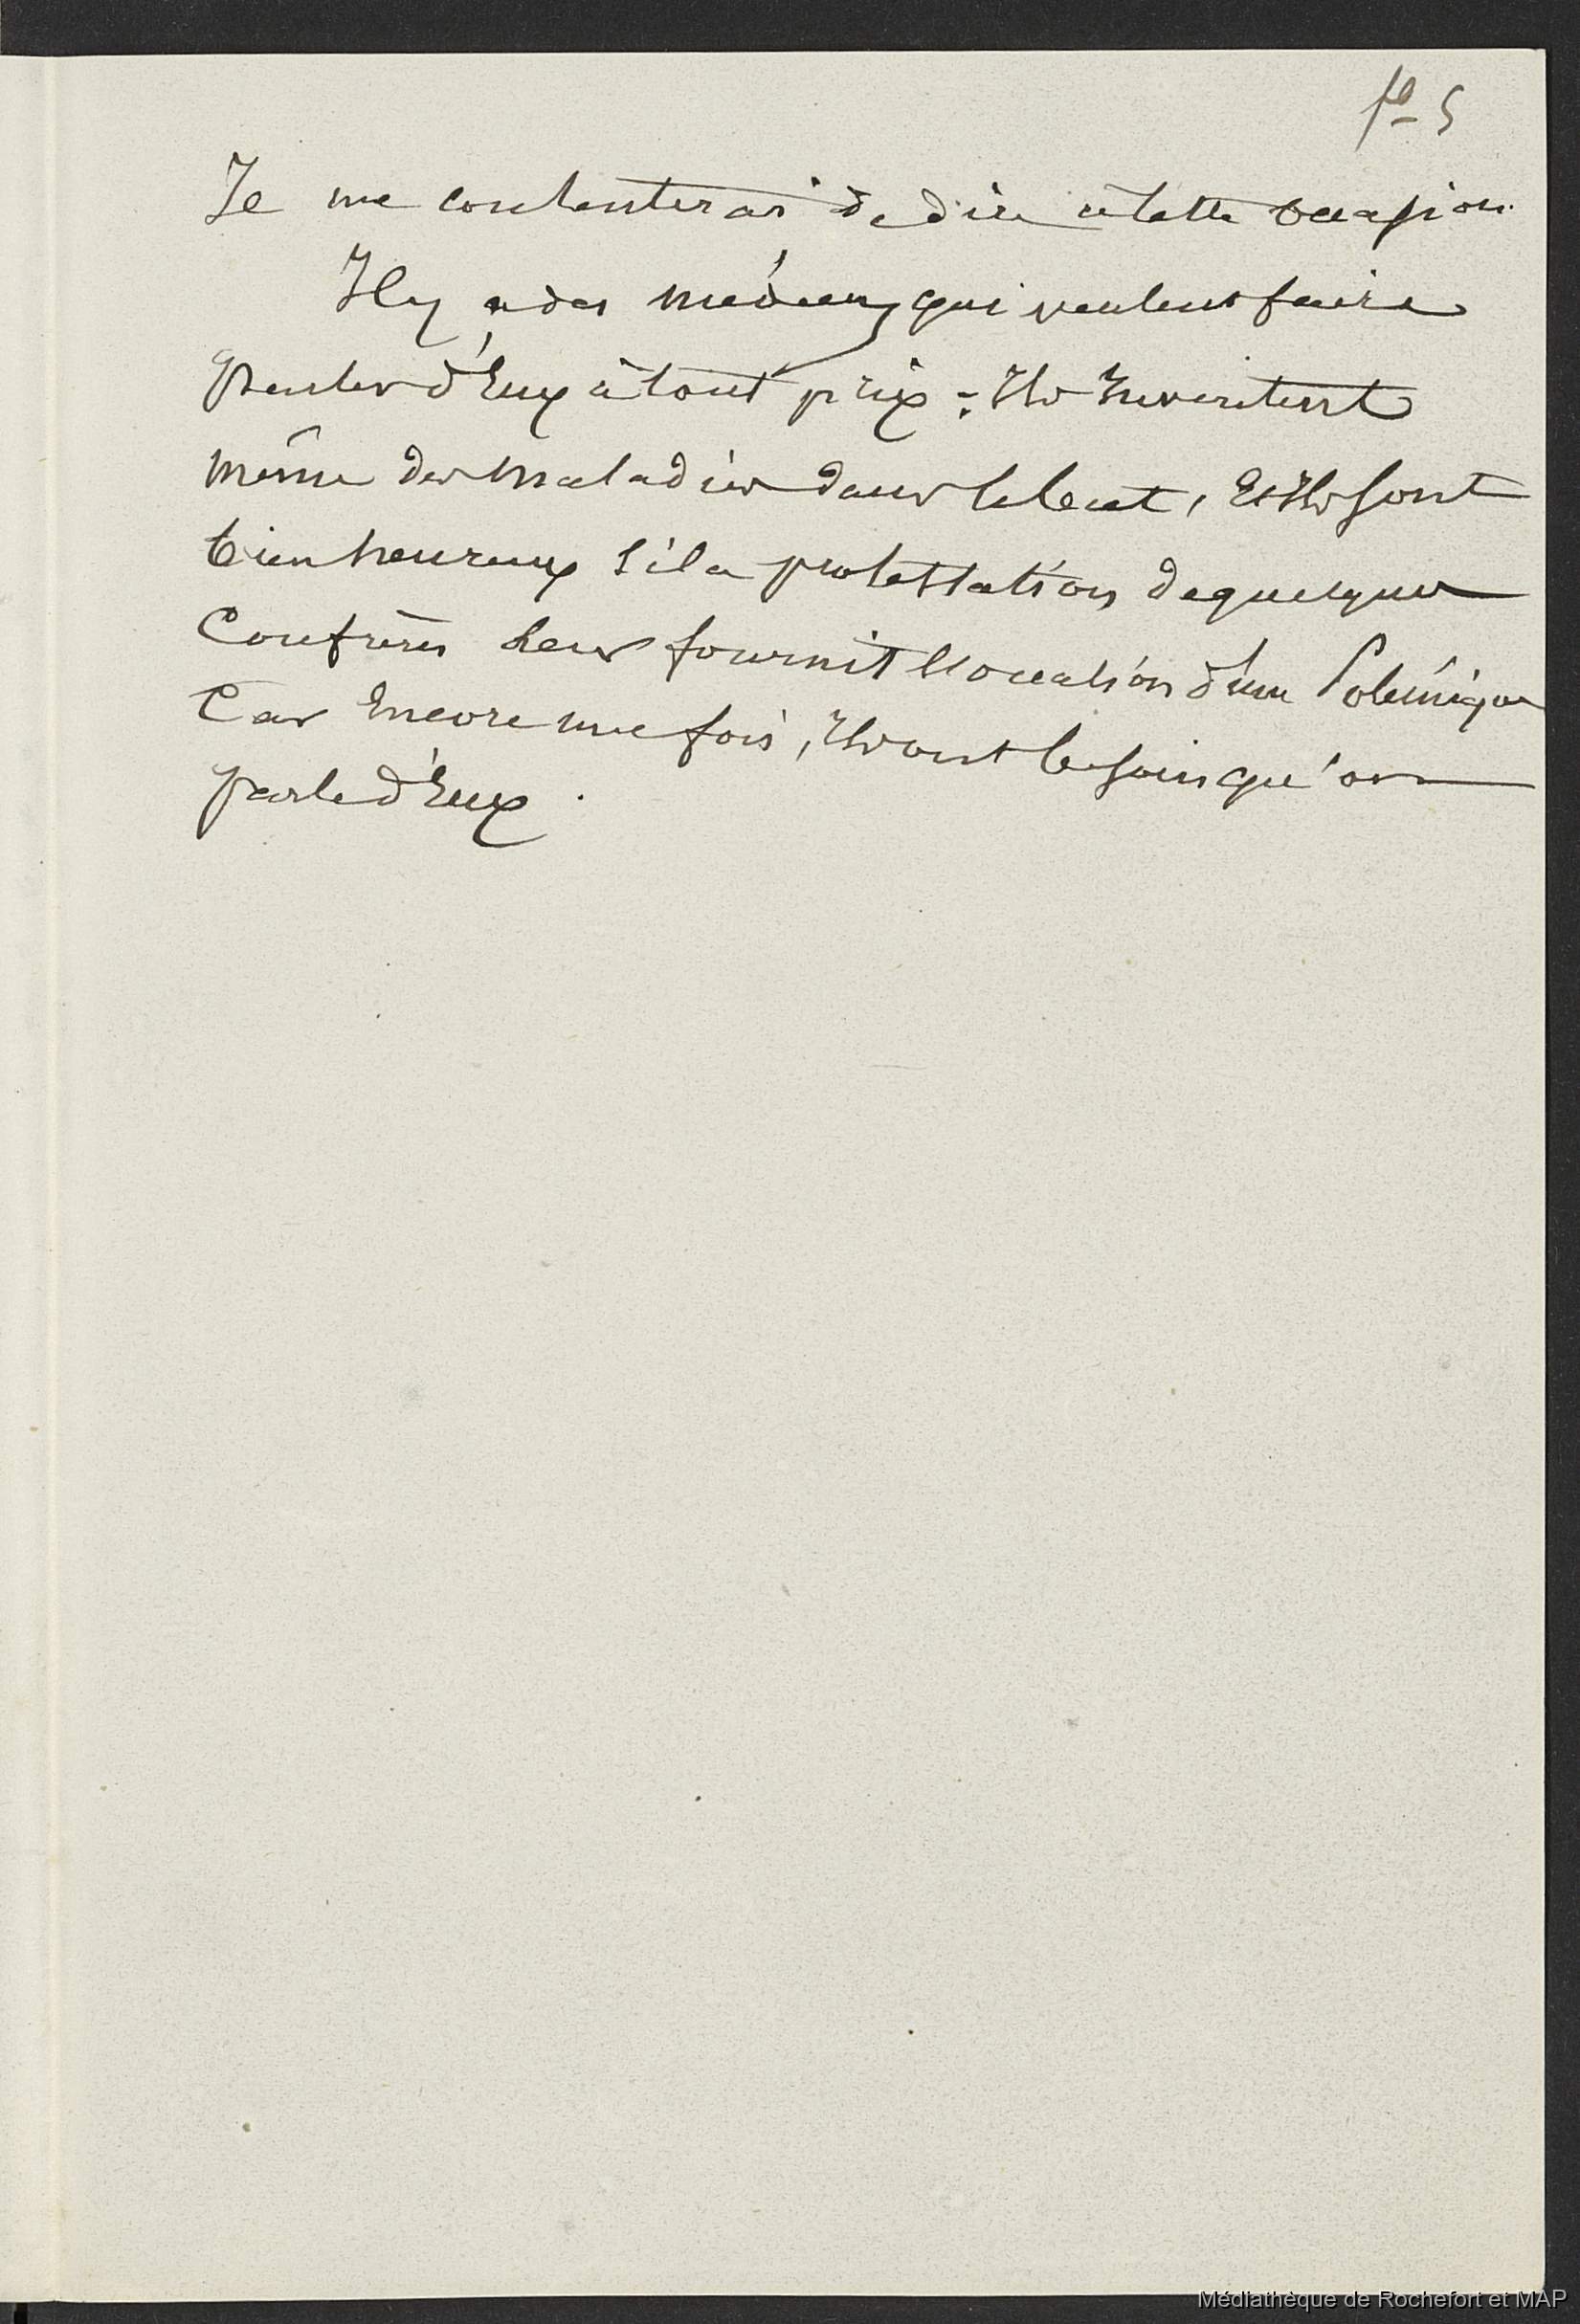 fo 5
Je me contenterai de dire à cette occasion
Il y a des médecins qui veulent faire
parler d'Eux à tout prix : Ils Inventent
même des Maladies dans le but, Et Ils sont
bien heureux si la protestation de quelques
Confrères leur fournit l'occasion d'une Polémique
Car Encore une fois, Ils ont besoin qu'on
parle d'Eux.
Médiathèque de Rochefort et MAP